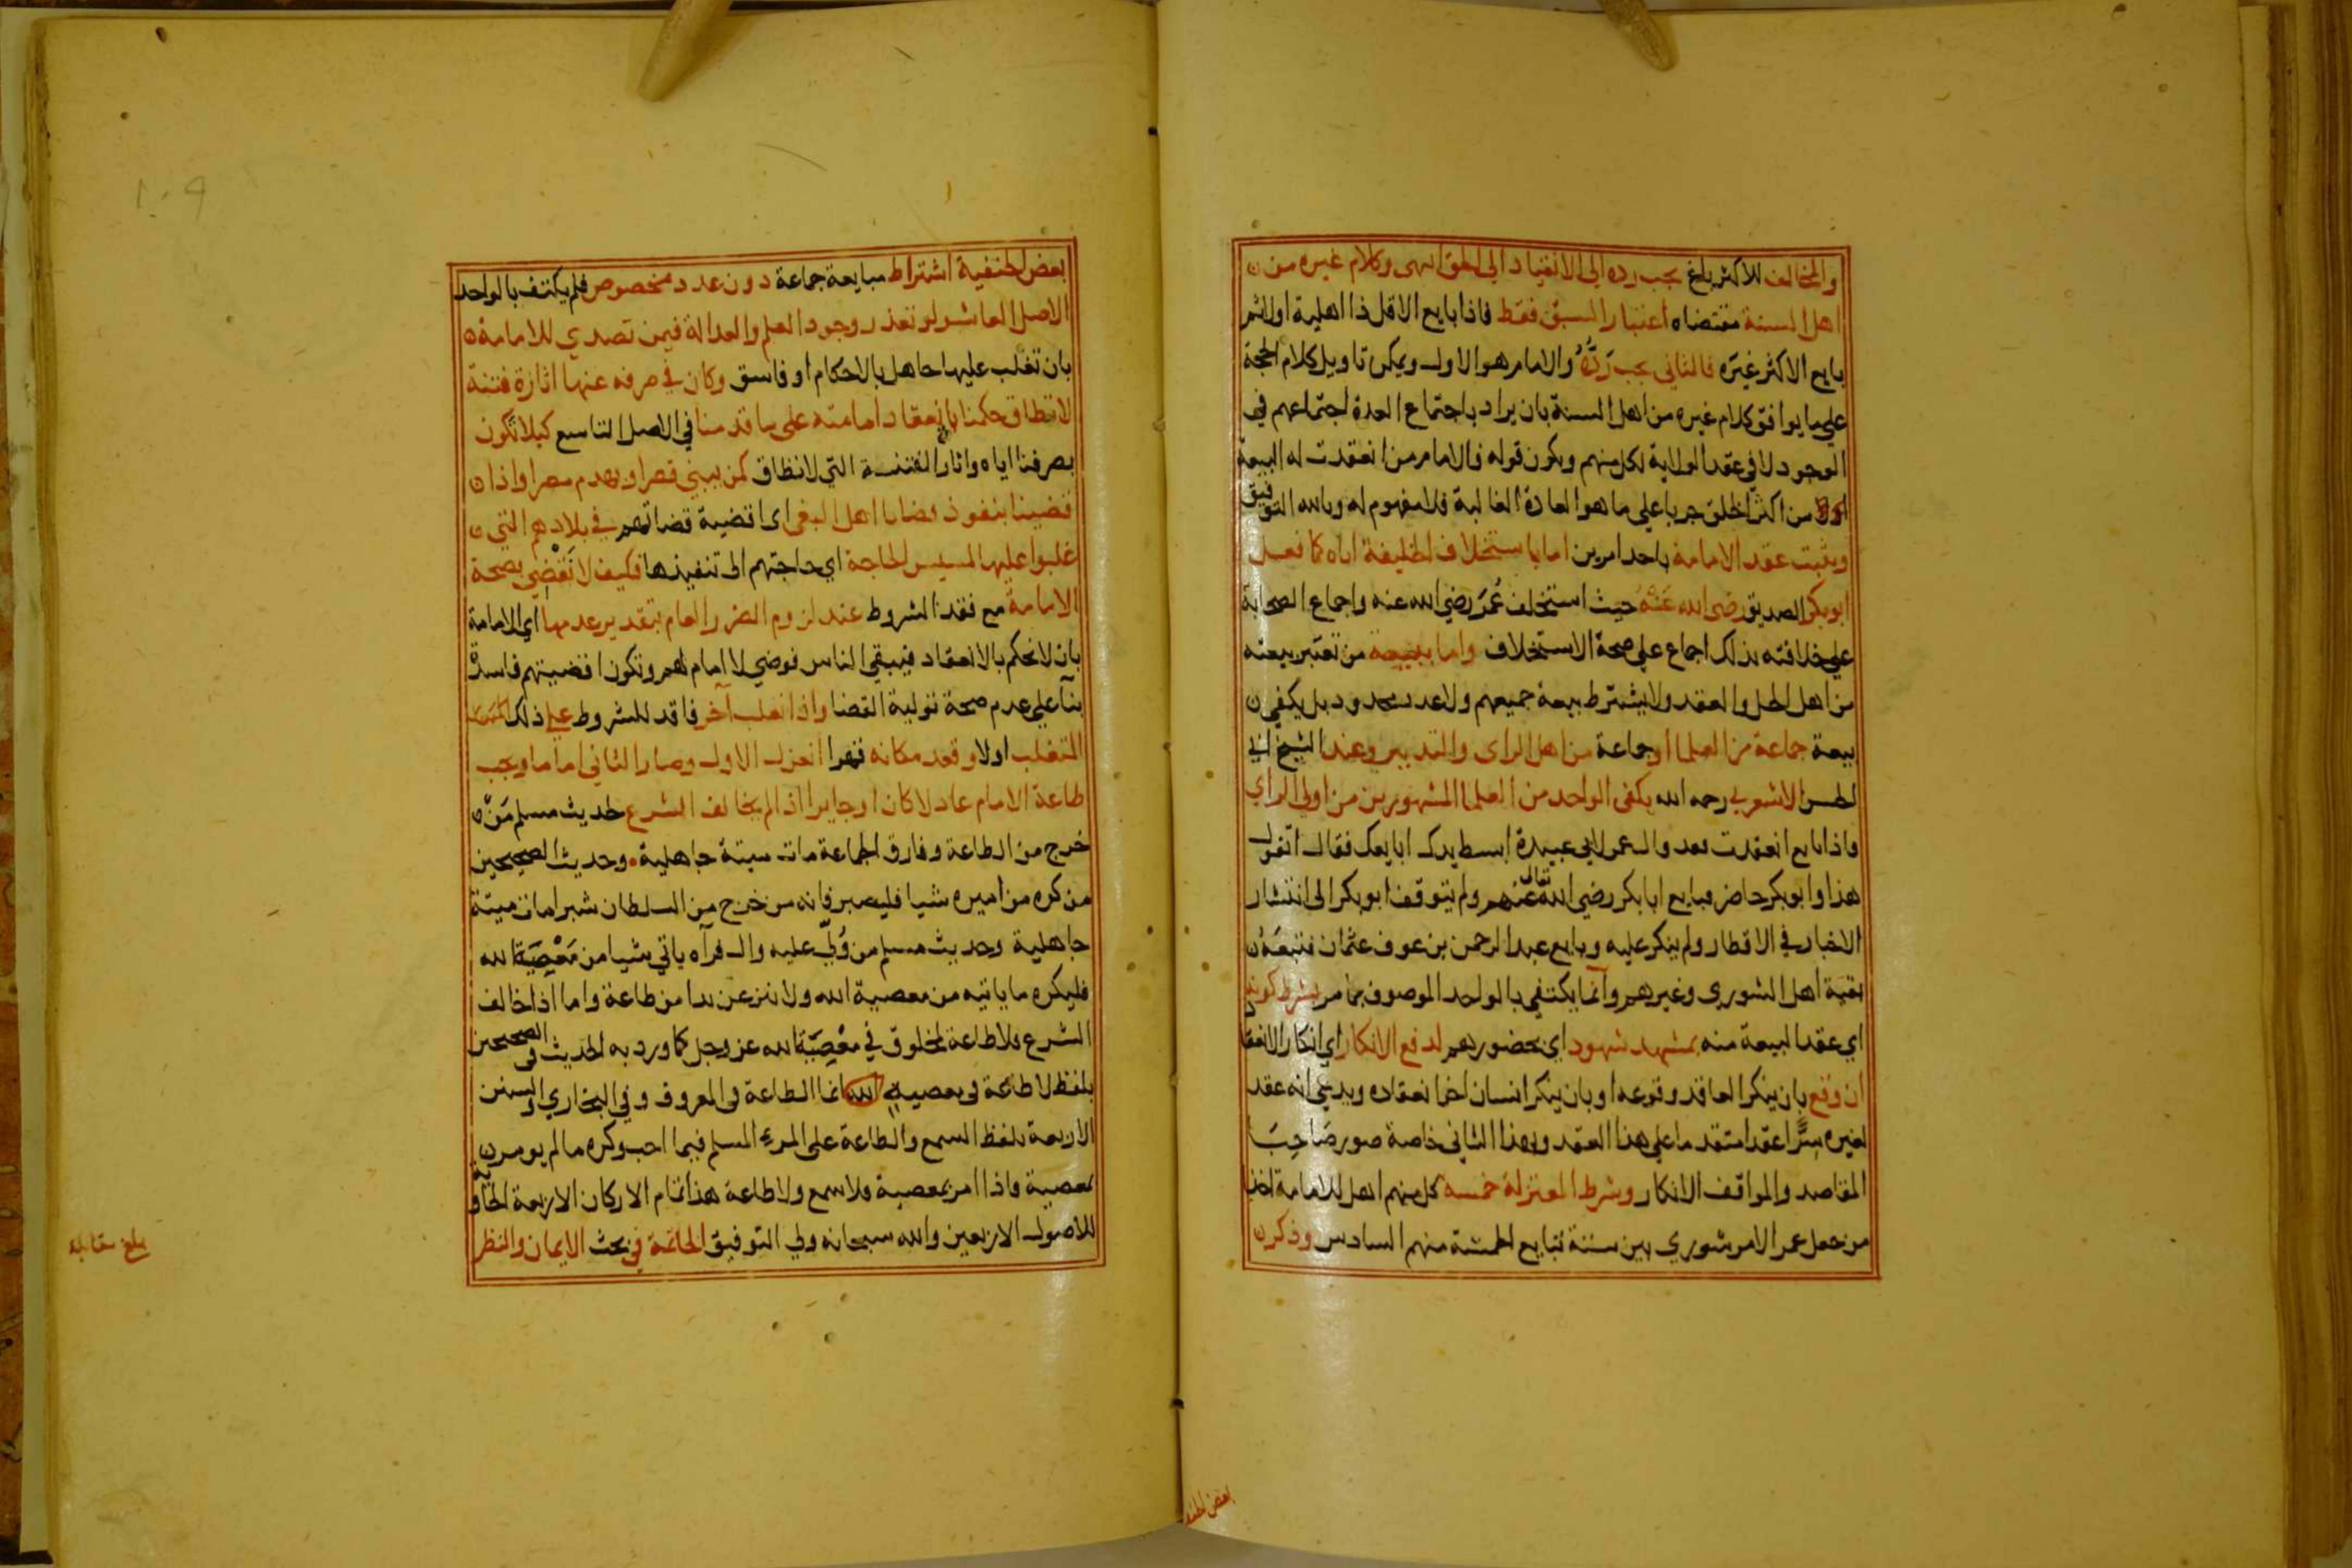 والمخالف للاكثر باغ يجب رده الى الانقياد الى المحق انتهى وكلام غيره من
اهل السنة مقتضاه اعتبار السبق فقط فاذا بايع الاقل ذا اهلية اولا ثم
بايع الاكثر غيره فالثاني يجب رَدُّهُ والامام هو الاول ويمكن تاويل كلام الحجة
على ما يوافق كلام غيره من اهل السنة بان يراد باجتماع العدة اجتماعهم في
الوجود لا في عقد الولاية لكل منهم ويكون قوله فالامام من انعقدت له البيعة
من اكثر الخلق جريا على ما هو العادة الغالبة فلا مفهوم له وبالله التوفيق
ويثبت عقد الامامة باحد امرين اما باستخلاف الخليفة اياه كما فعل
ابو بكر الصديق رضى الله عَنْهُ حيث استخلف عُمَرَ رضي الله عنه واجماع الصحابة
على خلافته بذلك اجماع على صحة الاستخلاف واما ببيعة من تعتبر بيعته
من اهل الحل والعقد ولا يشترط بيعة جميعهم ولا عدد محدود بل يكفي
بيعة جماعة من العلما او جماعة من اهل الراى والتدبير وعند الشيخ ابي
الحسن الاشعري رحمه الله يكفى الواحد من العلما المشهورين من اولي الراي
فاذا بايع انعقدت فقد قال عمر لابي عبيدة ابسط يدك ابايعك فقال اتقول
هذا وابو بكر حاضر فبايع ابا بكر رضي الله تعالى عنهم ولم يتوقف ابو بكر الى انتشار
الاخبار في الاقطار ولم ينكر عليه وبايع عبد الرحمن بن عوف عثمان فتبعَهُ
بقية اهل الشوري وغيرهم وانما يكتفي بالواحد الموصوف بما مر بشرط كونه
اي عقد البيعة منه بمشهد شهود اي بحضورهم لدفع الانكار اي انكار الانعقاد
ان وقع بان ينكر العاقد وقوعه او بان ينكر انسان اخر انعقاده ويدعي انه عقد
لغيره سِرًّا عقدا متقدما على هذا العقد وبهذا الثاني خاصة صور صَاحِبَ
المقاصد والمواقف الانكار وشرط المعتزلة خمسه كل منهم اهل للامامة اخذا
من جعل عمر الامر شوري بين ستة تبايع الخمسة منهم السادس وذكر
بعض الحنفية
بعض الحنفية اشتراط مبايعة جماعة دون عدد مخصوص فلم يكتف بالواحد
الاصل العاشر لو تعذر وجود العلم والعدالة فيمن تصدي للامامة
بان تغلب عليها جاهل بالاحكام او فاسق وكان في صرفه عنها اثارة فتنة
لا تطاق حكمنا بانعقاد امامته على ما قدمنا في الاصل التاسع كيلا نكون
بصرفنا اياه واثارة الفتنة التي لا تطاق كمن يبني قصرا ويهدم مصرا واذا
قضينا بنفوذ قضايا اهل البغي اى اقضية قضاتهم في بلادهم التي
غلبوا عليها لمسيس الحاجة اي حاجتهم الى تنفيذها فكيف لا نَقْضِي بصحة
الامامة مع فقد الشروط عند لزوم الضرر العام بتقدير عدمها اي الامامة
بان لا نحكم بالانعقاد فيبقي الناس فوضي لا امام لهم وتكون اقضيتهم فاسدة
بنآ على عدم صحة تولية القضا واذا تغلب آخر فاقد للشروط على ذلك
المتغلب اولا وقعد مكانه قهرا انعزل الاول وصار الثاني اماما ويجب
طاعة الامام عادلا كان او جايرا اذا لم يخالف الشرع لحديث مسلم مَنْ
خرج من الطاعة وفارق الجماعة مات ميتة جاهلية وحديث الصحيحين
من كره من اميره شيا فليصبر فانه من خرج من السلطان شبرا مات ميتة
جاهلية وحديث مسلم من وُلِّيَ عليه وال فرآه ياتي شيا من مَعْصِيَةِ الله
فليكره ما ياتيه من معصية الله ولا ينزعن يدا من طاعة واما اذا خالف
الشرع فلا طاعة لمخلوق في مَعْصِيَةِ الله عز وجل كما ورد به الحديث في الصحيحين
بلفظ لا طاعة في معصية الله انما الطاعة في المعروف وفي البخاري والسنن
الاربعة بلفظ السمع والطاعة على المرء المسلم فيما احب وكره ما لم يومر
بمعصية فاذا امر بمعصية فلا سمع ولا طاعة هذا تمام الاركان الاربعة الحاوية
للاصول الاربعين والله سبحانه ولي التوفيق الخاتمة في بحث الايمان والنظر
بلغ مقابلة
١٠٩